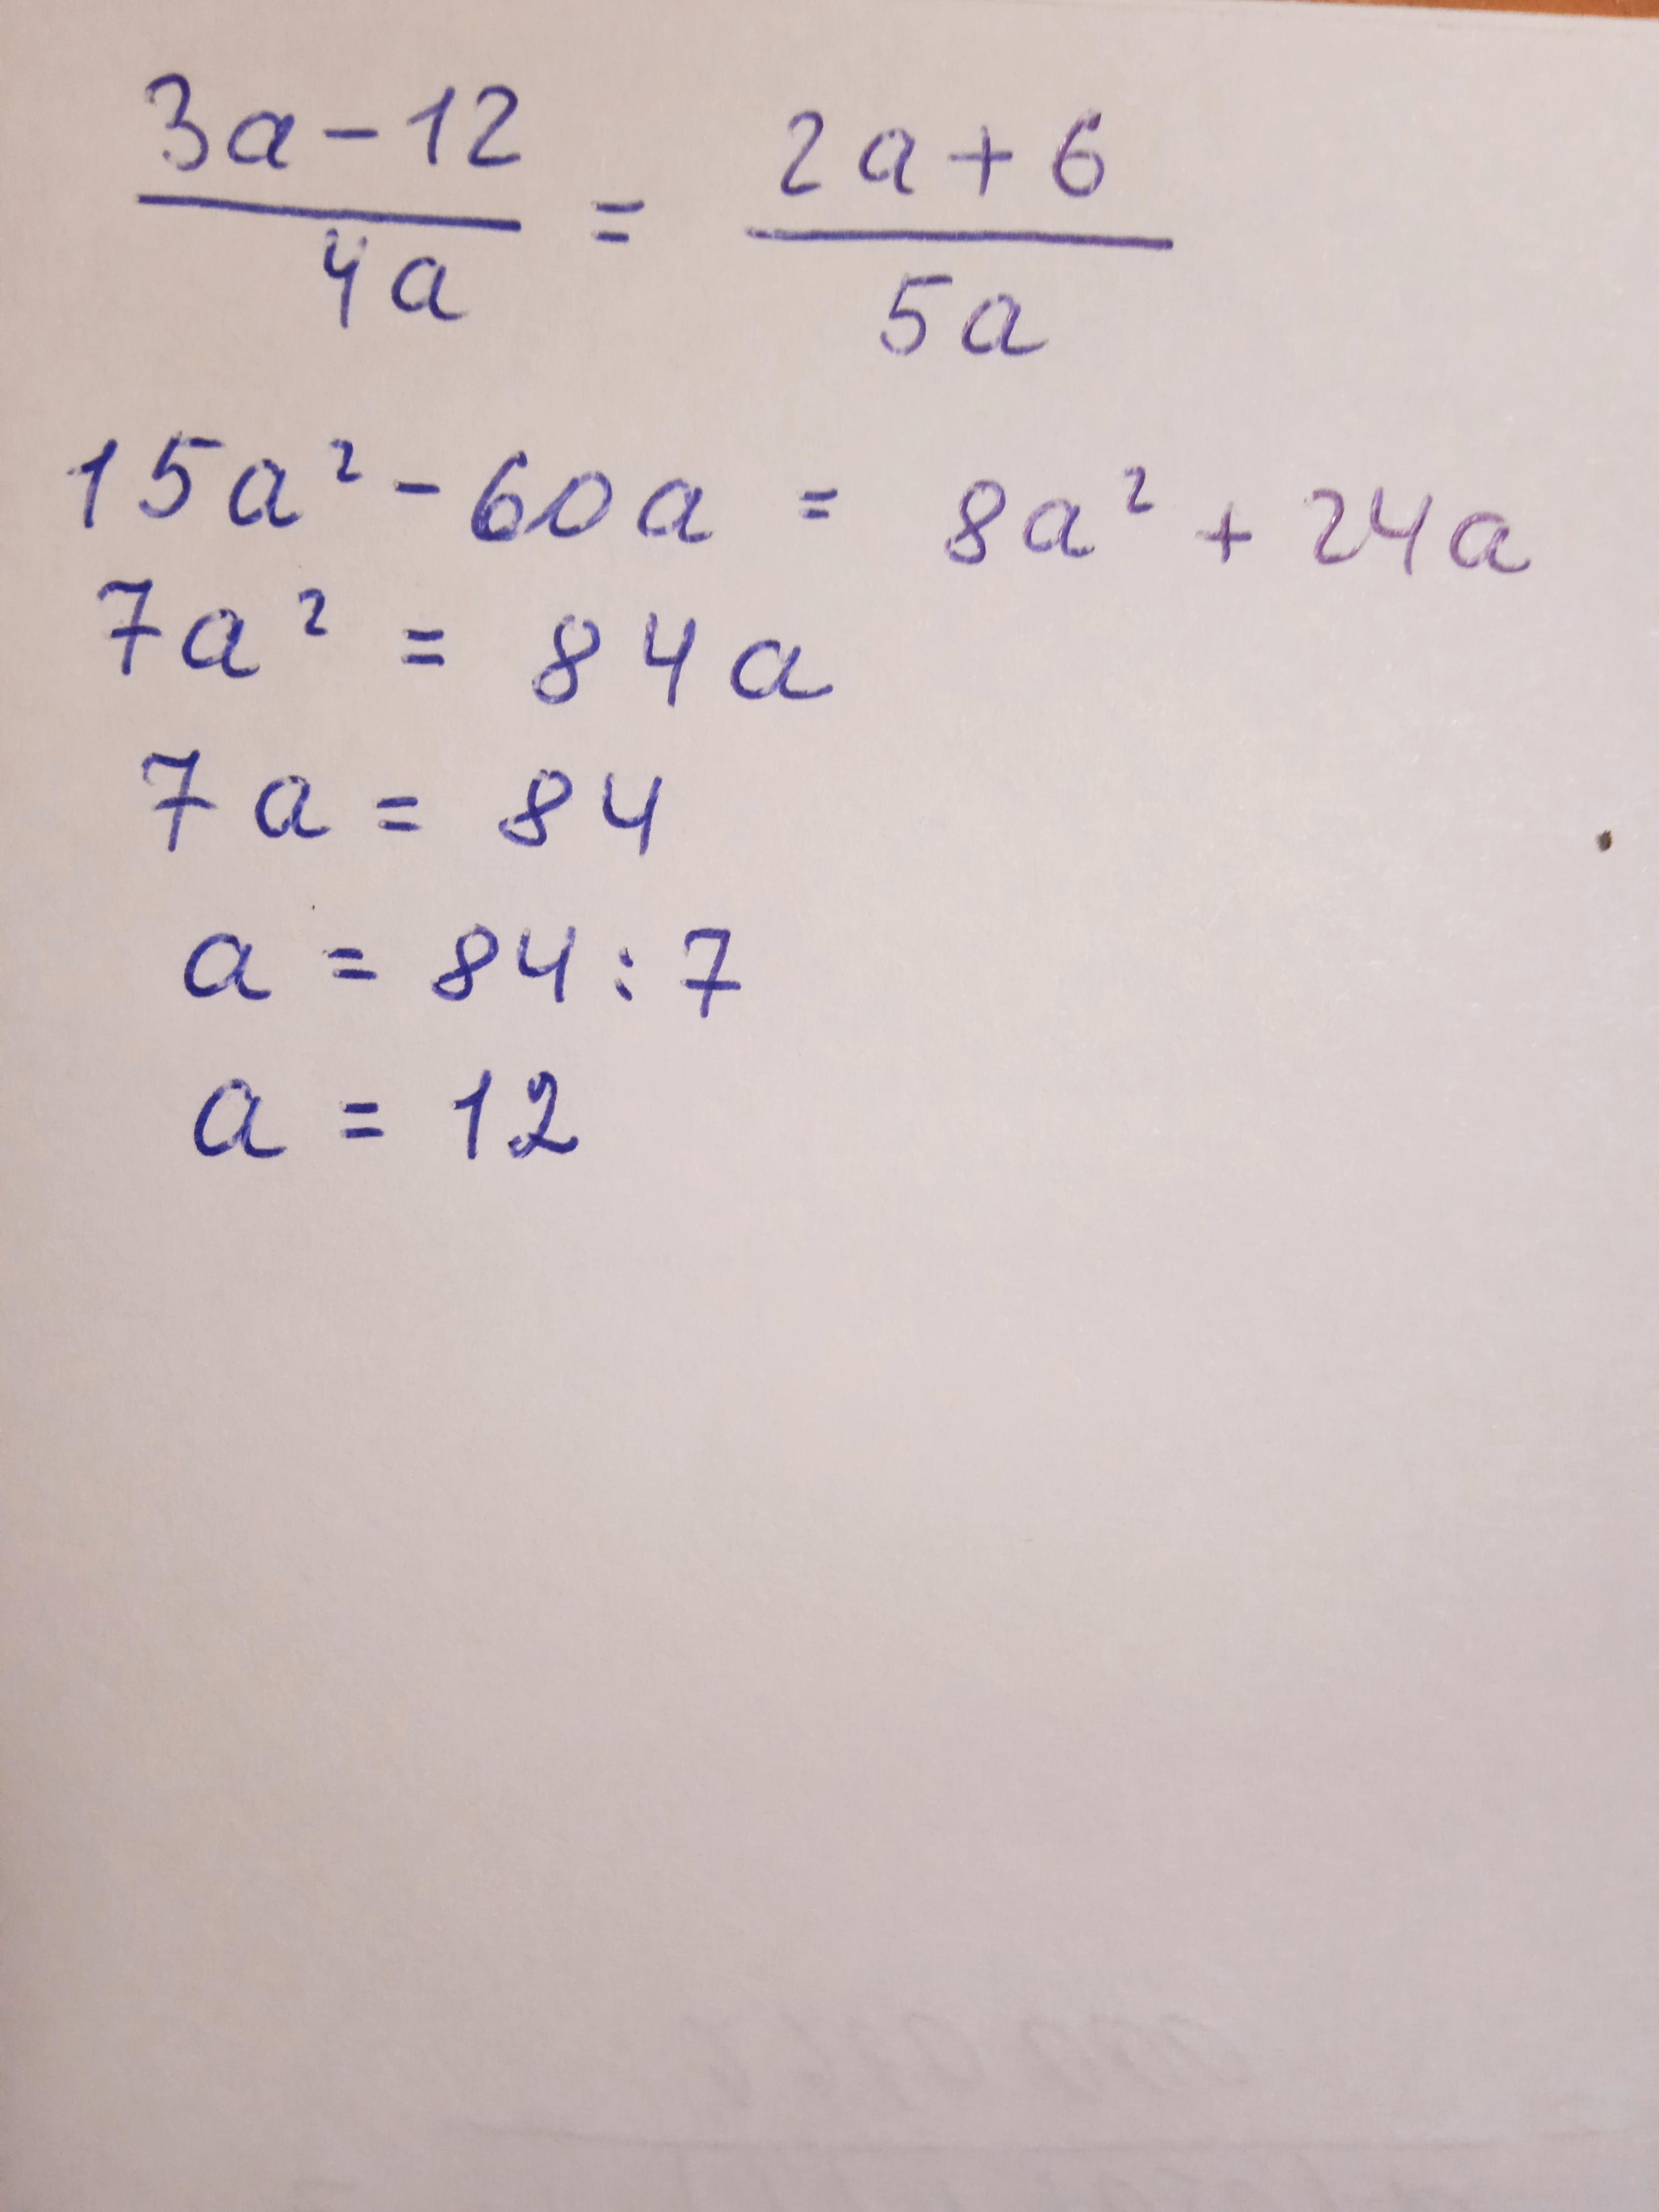 3a-12 / 4a = 2a+6 / 5a
15a² - 60a = 8a² + 24a
7a² = 84a
7a = 84
a = 84 : 7
a = 12